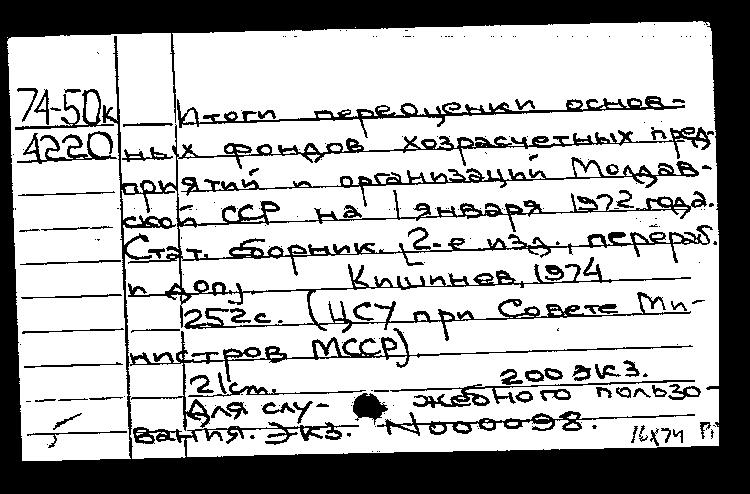 74-50к
4220
Итоги переоценки основ-
ных фондов хозрасчетных пред-
приятий и организаций Молдав-
ской ССР на 1 января 1972 года.
Стат. сборник. [2-е изд., перераб.
и доп.]. Кишинев, 1974.
252с. (ЦСУ при Совете Ми-
нистров МССР).
21см. 200 экз.
Для слу- жебного пользо-
вания. Экз. N000098.
16X74